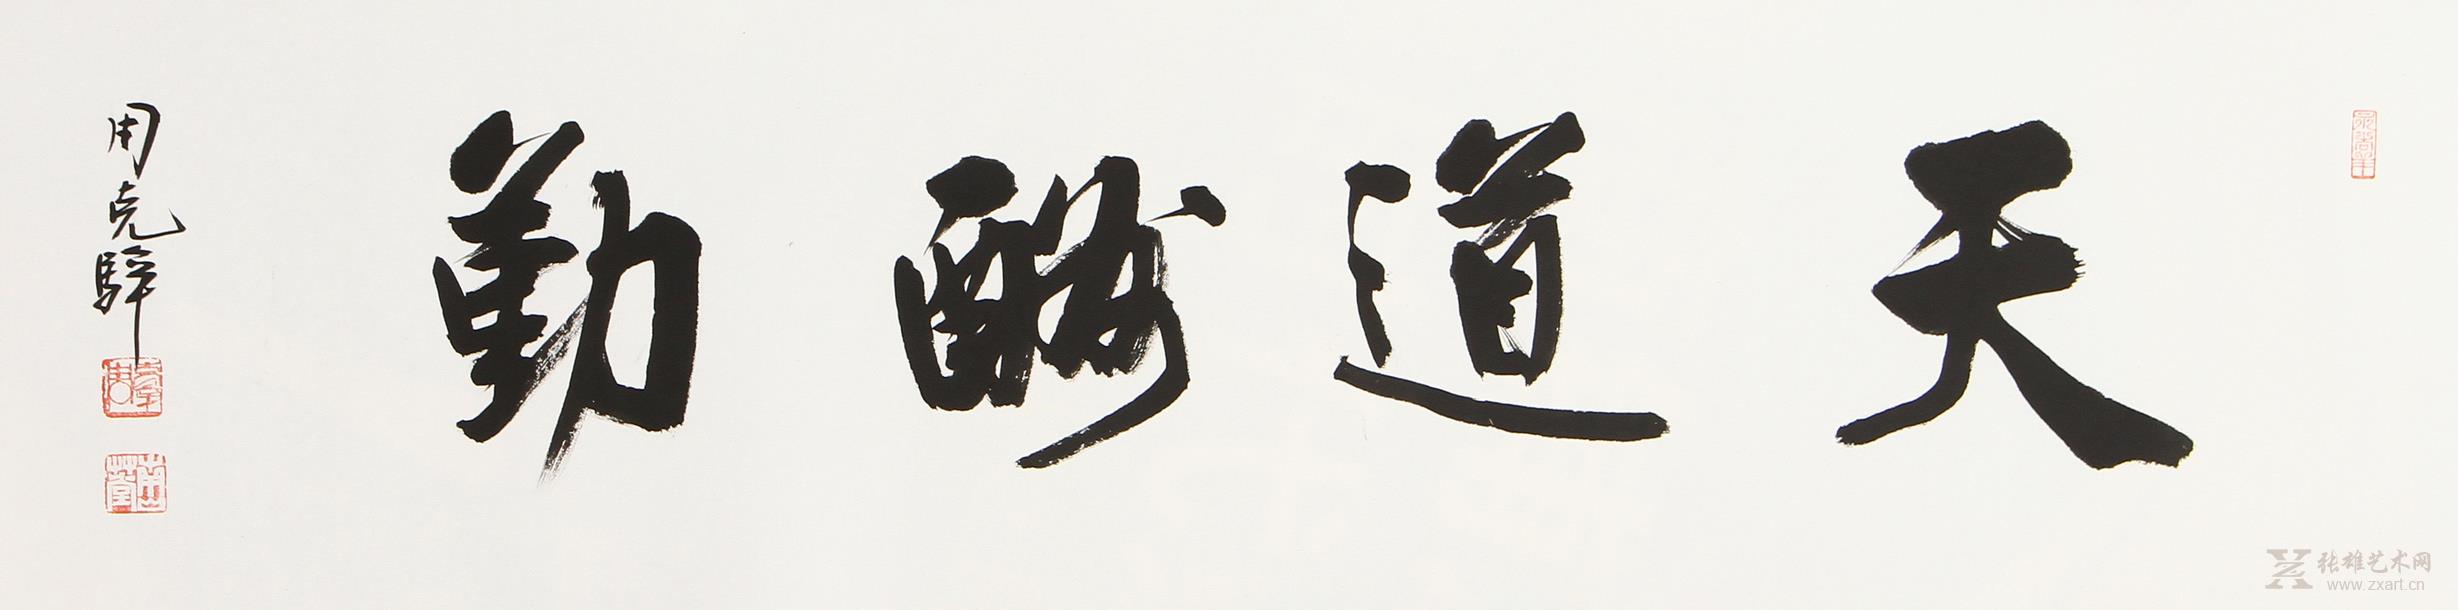 天道酬勤
周克骅
张雄艺术网
www.zxart.cn